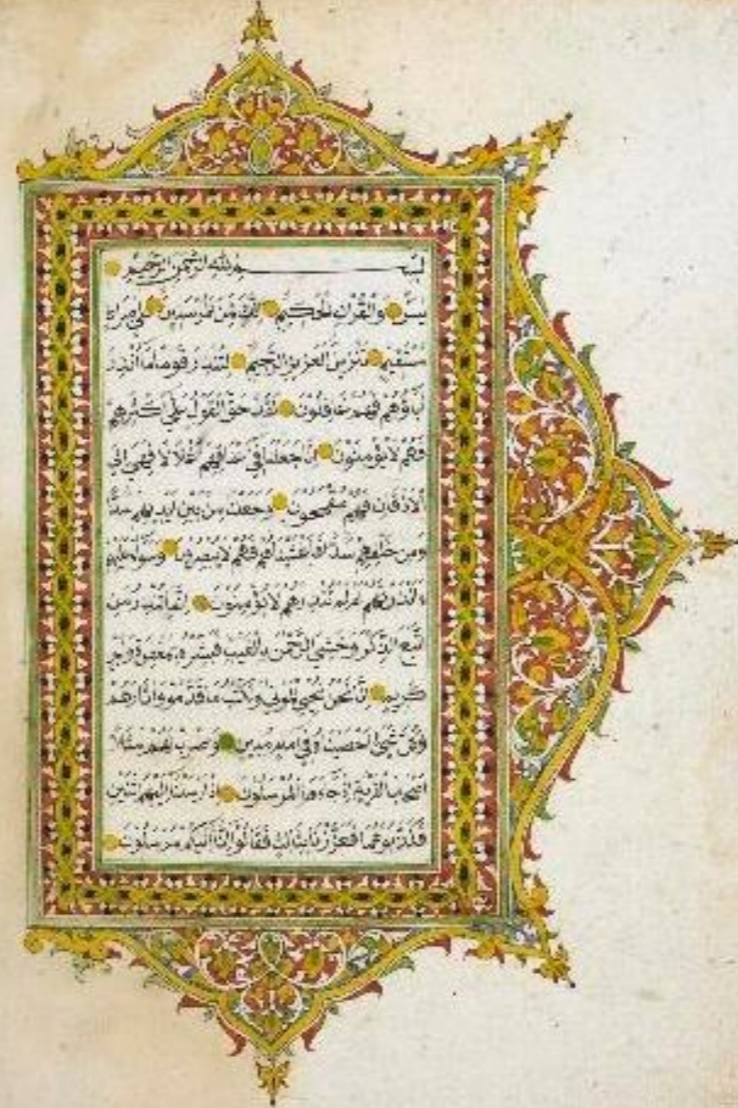 بسم الله الرحمن الرحيم
يس والقران الحكيم انك لمن المرسلين على صراط
مستقيم تنزيل العزيز الرحيم لتنذر قوما ما انذر
اباؤهم فهم غافلون لقد حق القول على اكثرهم
فهم لا يؤمنون انا جعلنا في اعناقهم اغلالا فهي الى
الاذقان فهم مقمحون وجعلنا من بين ايديهم سدا
ومن خلفهم سدا فاغشيناهم فهم لا يبصرون وسواء عليهم
ءانذرتهم ام لم تنذرهم لا يؤمنون انما تنذر من
اتبع الذكر وخشي الرحمن بالغيب فبشره بمغفرة واجر
كريم انا نحن نحيي الموتى ونكتب ما قدموا واثارهم
وكل شيء احصيناه في امام مبين واضرب لهم مثلا
اصحاب القرية اذ جاءها المرسلون اذ ارسلنا اليهم اثنين
فكذبوهما فعززنا بثالث فقالوا انا اليكم مرسلون